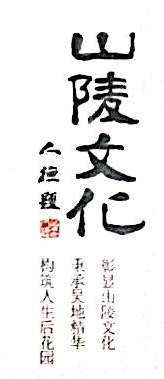 山陵文化
人德题
彰显山陵文化
秉承吴地精华
构筑人生后花园